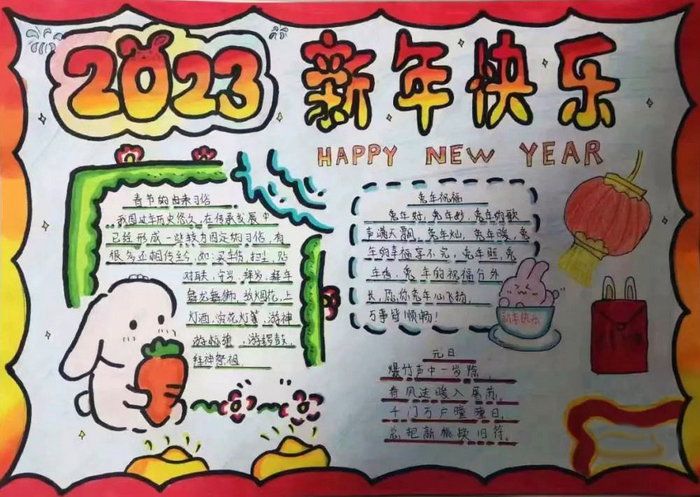 2023
新年快乐
HAPPY NEW YEAR
春节的由来习俗
我国过年历史悠久,在传承发展中
已经形成一些较为固定的习俗,有
很多还相传至今,如:买年货,扫尘,贴
对联,守岁,拜岁,拜年
舞龙舞狮,放烟花,上
灯酒,赏花灯等,游神
拜神祭祖
兔年祝福
兔年好,兔年妙,兔年的歌
声满天飘,兔年灿,兔年暖,兔
年的幸福享不完,兔年旺,兔
年的祝福分外
长,愿你兔年心飞扬,
万事皆顺畅!
新年快乐
元日
爆竹声中一岁除,
春风送暖入屠苏,
千门万户曈曈日,
总把新桃换旧符,